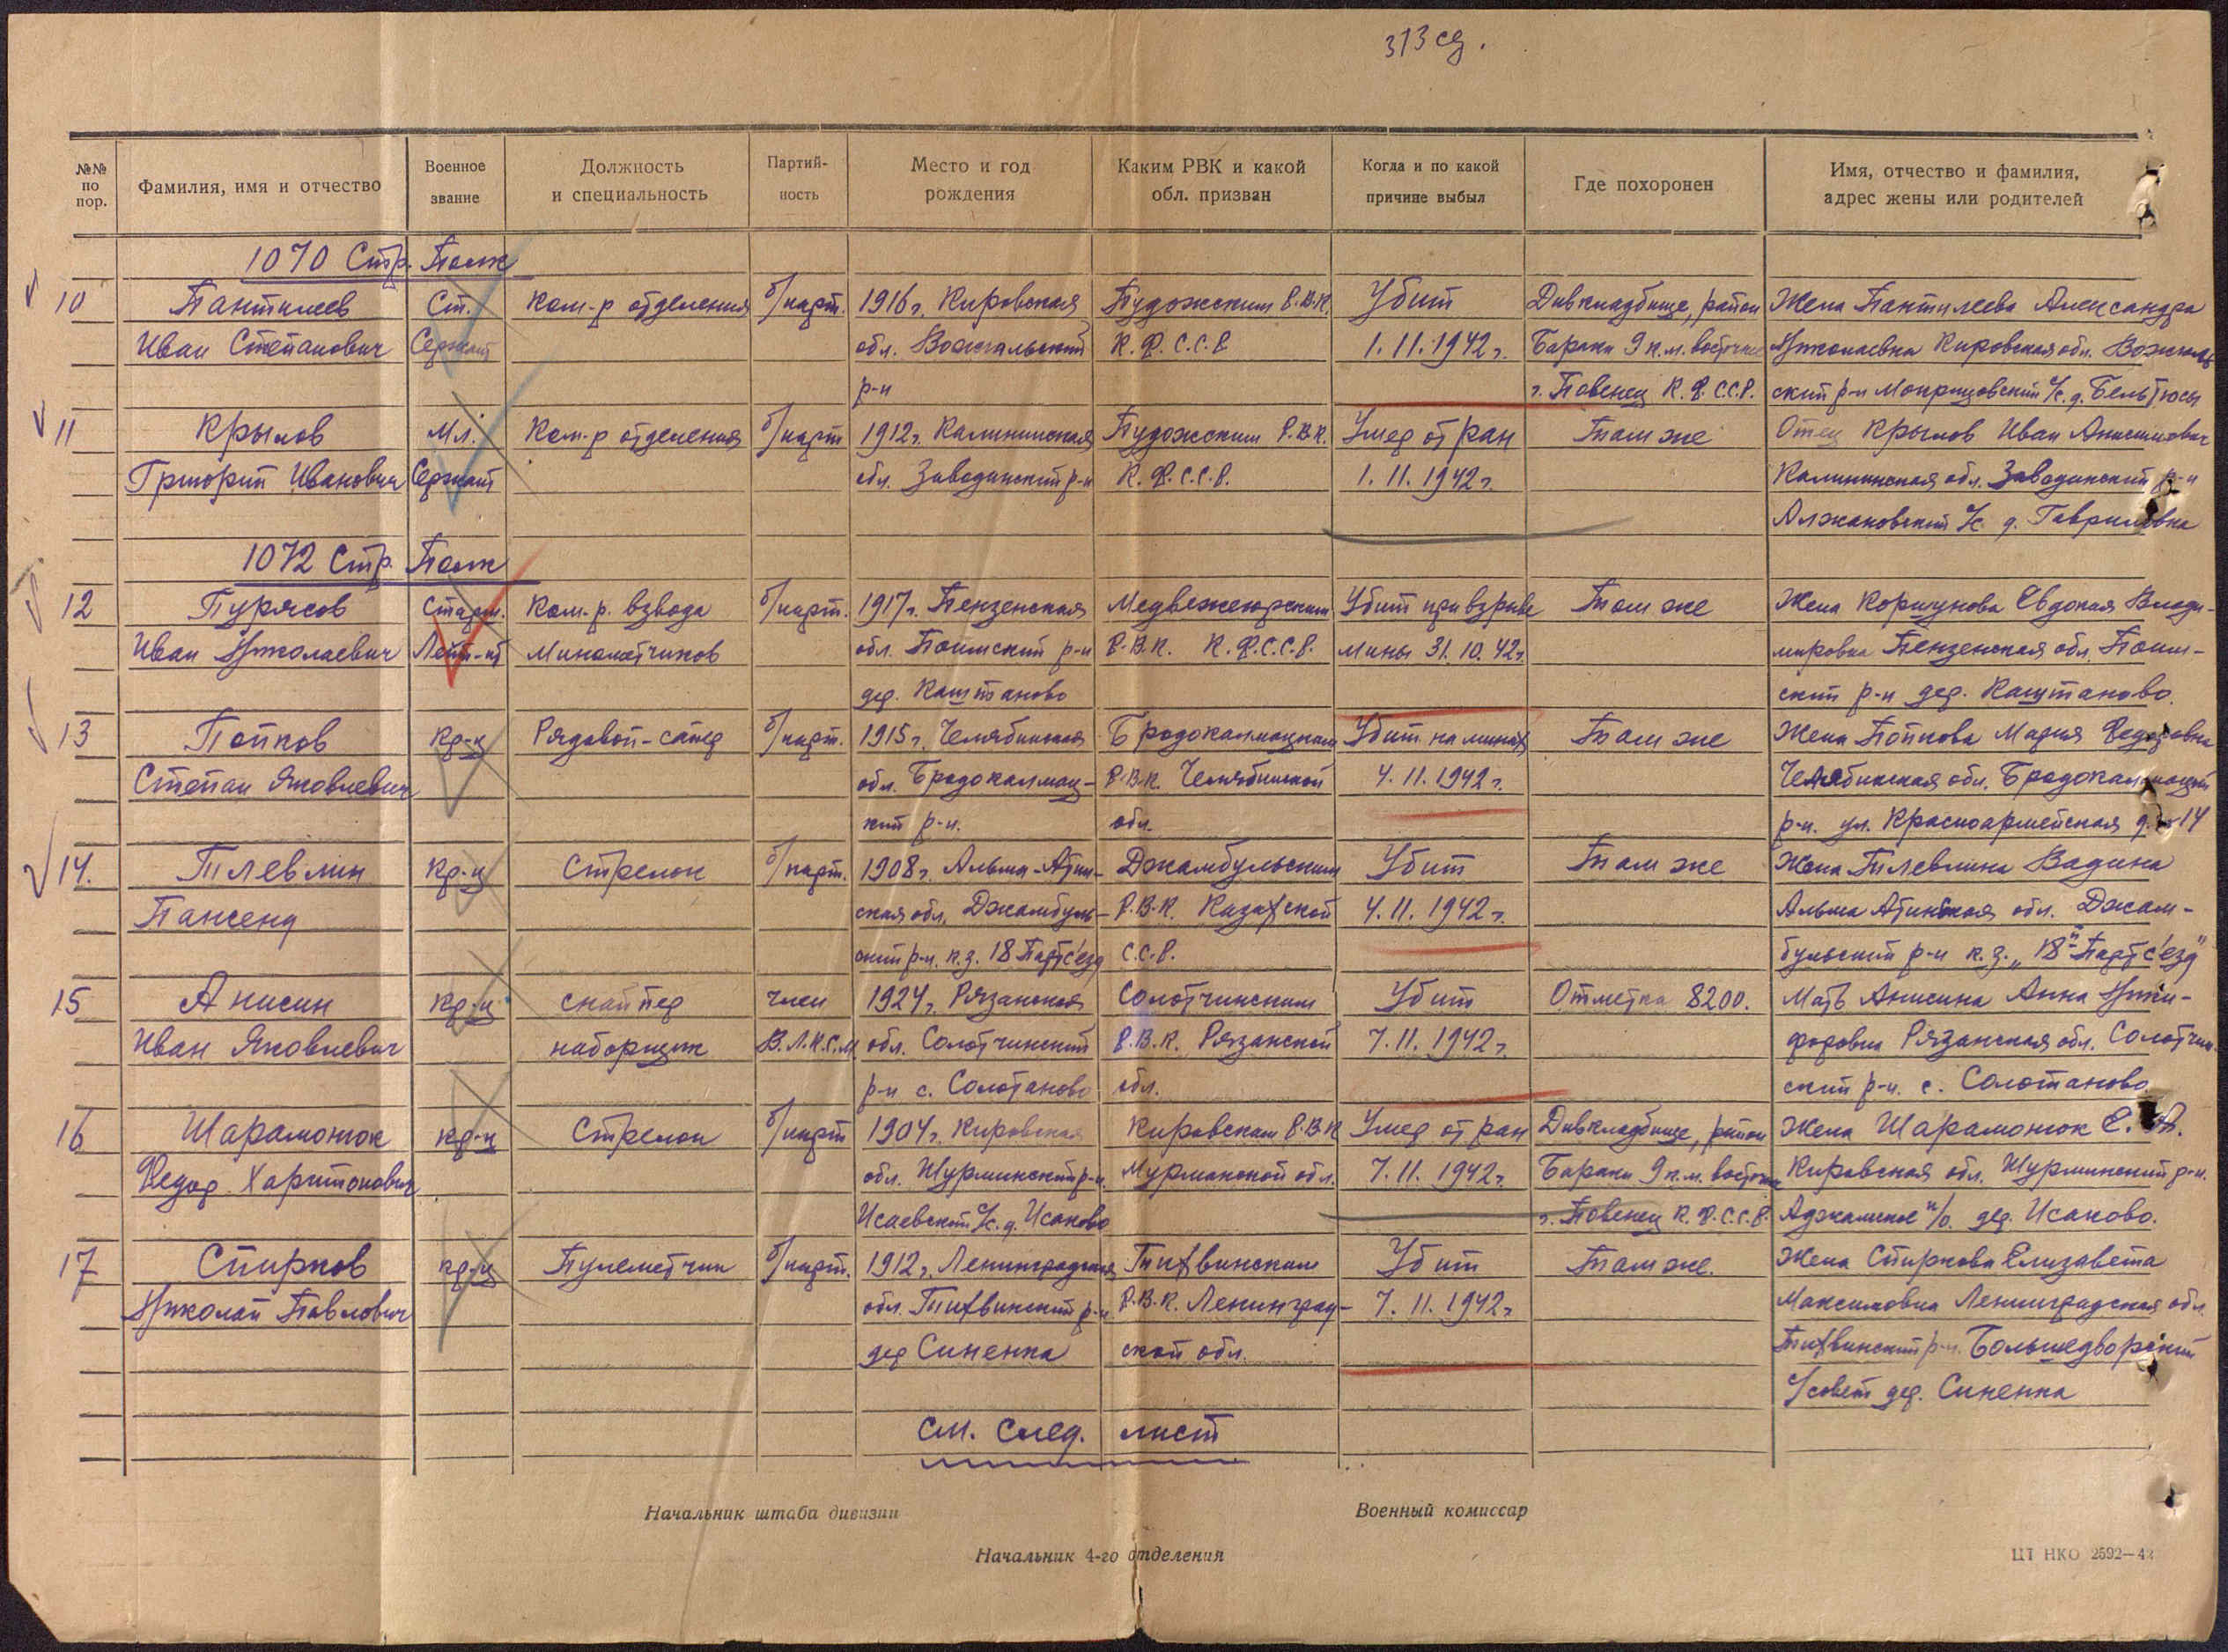 313 сд.
№№ по пор.
Фамилия, имя и отчество
Военное звание
Должность и специальность
Партий-ность
Место и год рождения
Каким РВК и какой обл. призван
Когда и по какой причине выбыл
Где похоронен
Имя, отчество и фамилия, адрес жены или родителей
1070 Стр. Полк
10 Пантилеев Ст. Ком-р отделения б/парт. 1916 г. Кировская Пудожским Р.В.К. Убит Дивкладбище, район Жена Пантилеева Александра
Иван Степанович Сержант обл. Вожгальский К.Ф.С.С.Р. 1.11.1942 г. Бараки 9 к.м. восточнее Николаевна Кировская обл. Вожгаль
р-н г. Повенец К.Ф.С.С.Р. ский р-н с/с. д.
11 Крылов Мл. Ком-р отделения б/парт 1912 г. Калининская Пудожским Р.В.К. Умер от ран Там же Отец Крылов Иван Анисимович
Григорий Иванович Сержант обл. р-н К.Ф.С.С.Р. 1.11.1942 г. Калининская обл. р-н
с/с. д. Гавриловка
1072 Стр. Полк
12 Пурясов Старш. Ком-р. взвода б/парт. 1917 г. Пензенская Медвежегорским Убит при взрыве Там же Жена Коршунова Евдокия Влади-
Иван Николаевич Лейт-нт Минометчиков обл. Поимский р-н Р.В.К. К.Ф.С.С.Р. мины 31.10.42 г. мировна Пензенская обл. Поим-
дер. Каштаново ский р-н дер. Каштаново.
13 Попков Кр-ц Рядовой-сапер б/парт. 1915 г. Челябинская Бродокалмацким Убит на минах Там же Жена Попкова Мария Федоровна
Степан Яковлевич обл. Бродокалмац- Р.В.К. Челябинской 4.11.1942 г. Челябинская обл. Бродокалмацкий
кий р-н. обл. р-н. ул. Красноармейская д. 14
14. Тлевлин Кр-ц Стрелок б/парт. 1908 г. Альма-Атин- Джамбульским Убит Там же Жена Тлевлина Вадина
Пансенд ская обл. Джамбуль- Р.В.К. Казахской 4.11.1942 г. Альма Атинская обл. Джам-
ский р-н. к.з. 18 Партсъезд С.С.Р. бульский р-н к.з. „18й Партс'езд"
15 Анисин кр-ц снайпер член 1924 г. Рязанская Солотчинским Убит Отметка 8200. Мать Анисина Анна Ники-
Иван Яковлевич наборщик В.Л.К.С.М. обл. Солотчинский Р.В.К. Рязанской 7.11.1942 г. форовна Рязанская обл. Солотчин
р-н с. Солотаново обл. ский р-н. с. Солотаново.
16 Шарамонюк кр-ц Стрелок б/парт 1904 г. Кировская Кировским Р.В.К. Умер от ран Дивкладбище, район Жена Шарамонюк Е. А.
Федор Харитонович обл. Шурминский р-н. Мурманской обл. 7.11.1942 г. Бараки 9 к.м. восточнее Кировская обл. Шурминский р-н.
Исаевский с/с. д. Исаково г. Повенец К.Ф.С.С.Р. п/о. дер. Исаково.
17 Спирков кр-ц Пулеметчик б/парт. 1912 г. Ленинградская Тихвинским Убит Там же. Жена Спиркова Елизавета
Николай Павлович обл. Тихвинский р-н Р.В.К. Ленинград- 7.11.1942 г. Максимовна Ленинградская обл.
дер Синенка ской обл. Тихвинский р-н. Большедворский
с/совет дер. Синенка
См. След. лист
Начальник штаба дивизии
Военный комиссар
Начальник 4-го отделения
ЦТ НКО 2592—42